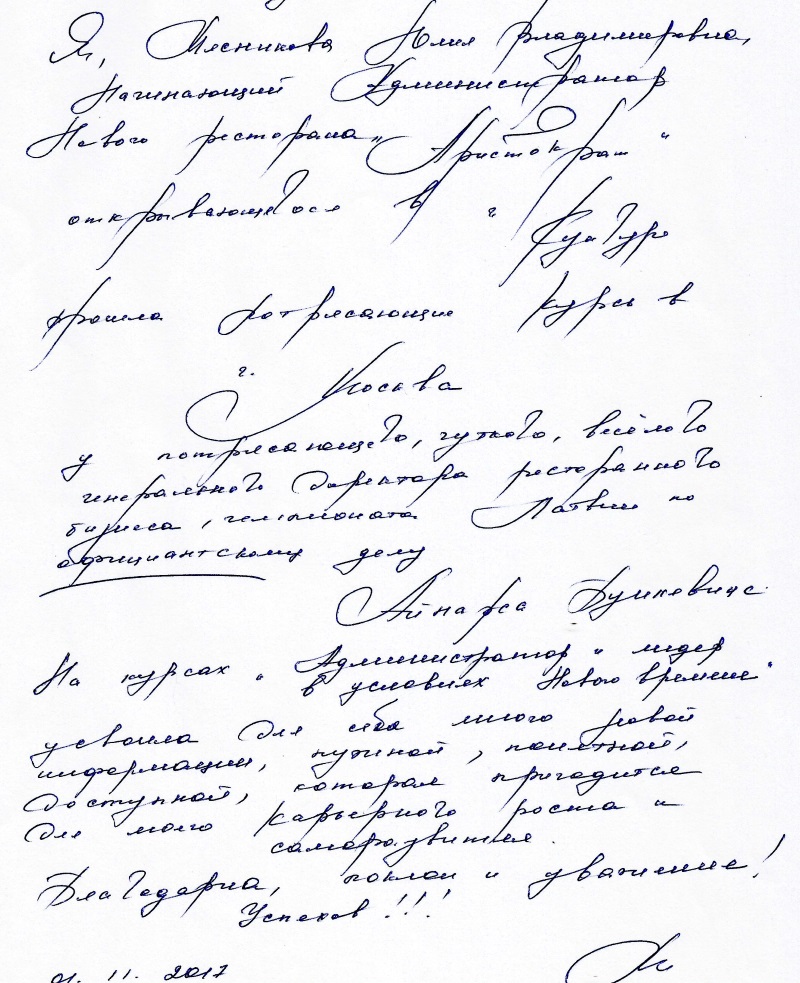 Я, Мясникова Юлия Владимировна,
Начинающий Администратор
Нового ресторана „Аристократ"
открывающегося в г.
прошла потрясающие курсы в
г. Москва
у потрясающего, чуткого, весёлого
генерального директора ресторанного
бизнеса, чемпионата Латвии по
официантскому делу
Айнарса
На курсах „Администратор - лидер
в условиях Нового времени"
усвоила для себя много новой
информации, нужной, понятной,
доступной, которая пригодится
для моего карьерного роста и
саморазвития.
Благодарна, поклон и уважение!
Успехов!!!
11. 2017